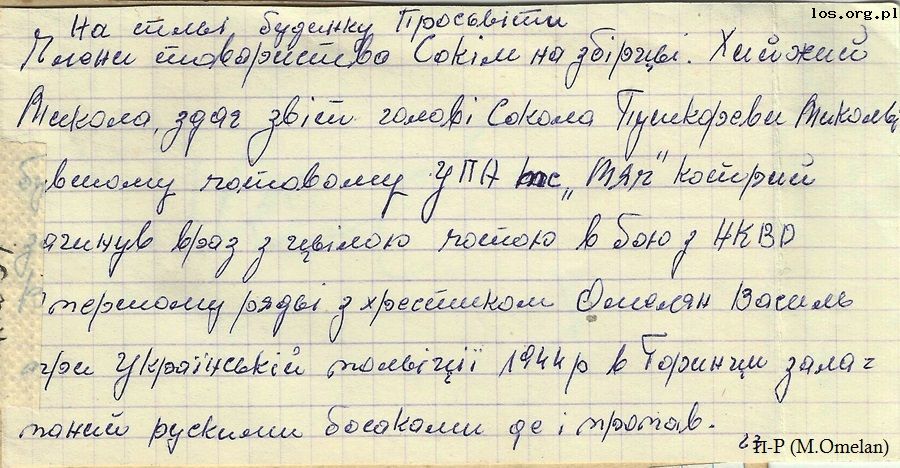 los.org.pl
На тлі будинку Просьвіти
Члени товариства Сокіл на збірці. Хижий
Микола, здає звіт голові Сокола Пушкареви Миколі
бувшому чотовому УПА „Мяч" котрий
загинув враз з цілою чотою в бою з НКВД
першому ряді з хрестиком Омелян Василь
при Українській поліції 1944 р в Горинци зала-
паний рускими босаками де і пропав.
П-Р (M.Omelan)